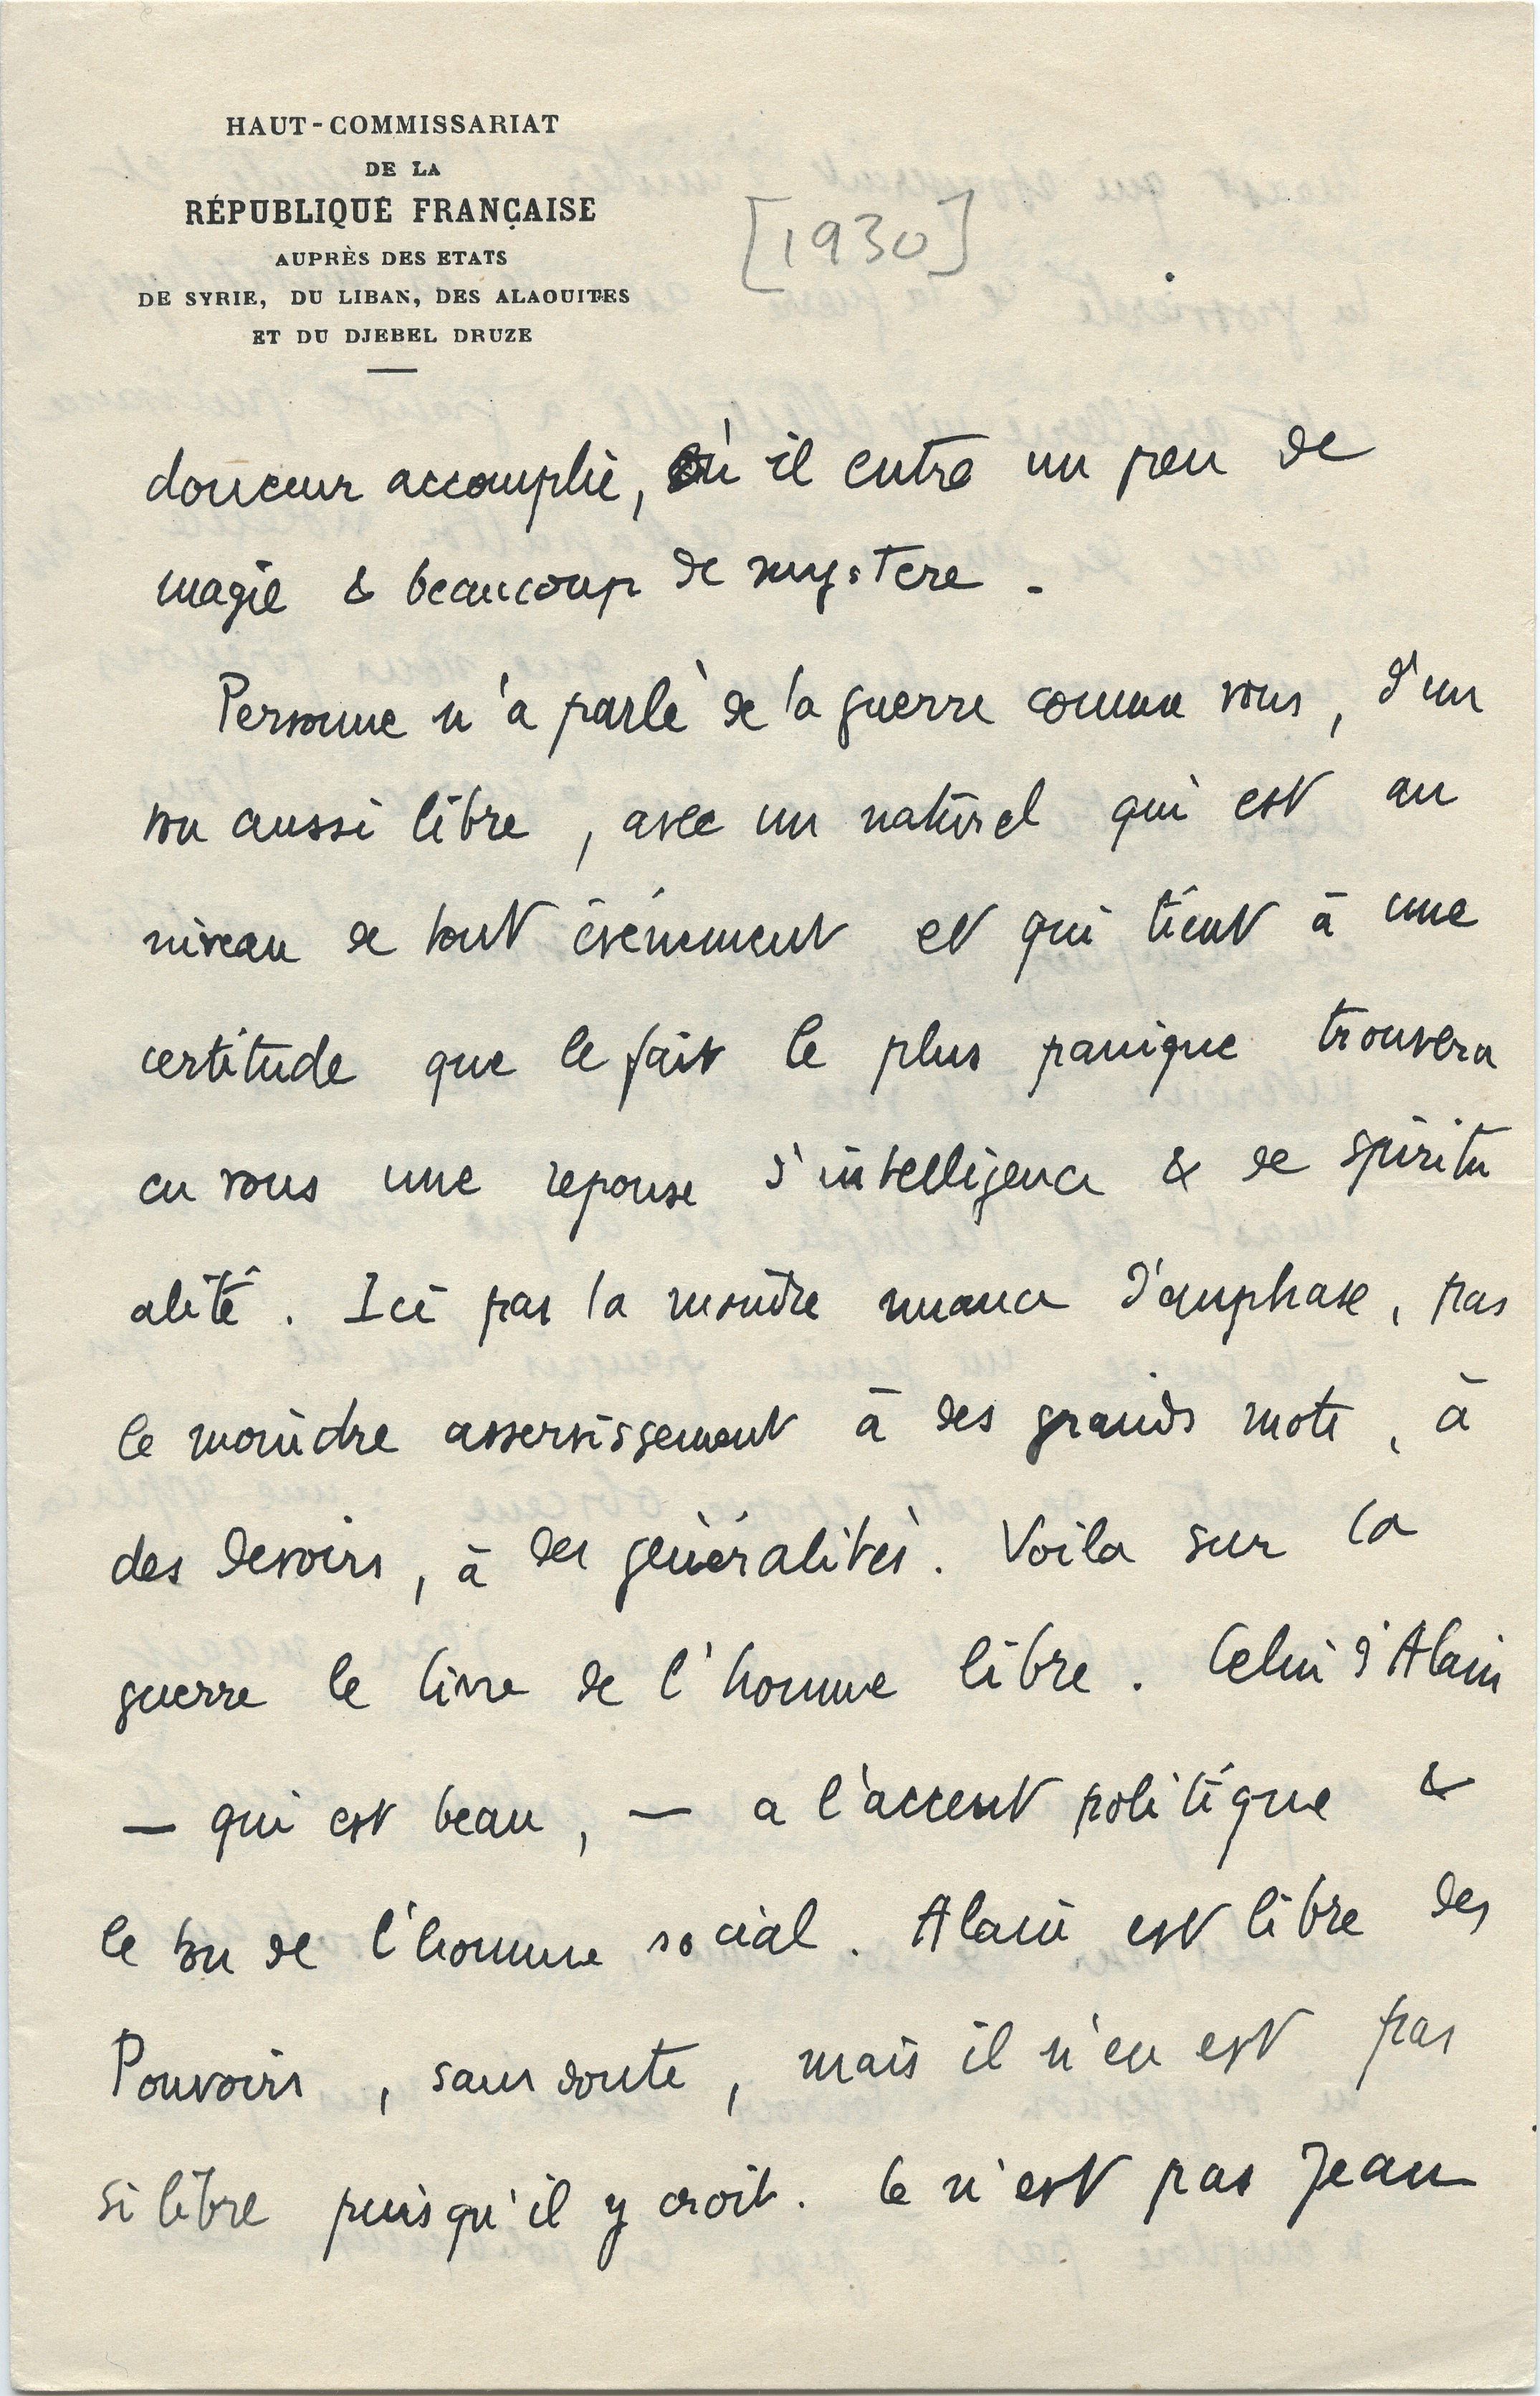 HAUT-COMMISSARIAT
DE LA
RÉPUBLIQUE FRANÇAISE
AUPRÈS DES ETATS
DE SYRIE, DU LIBAN, DES ALAOUITES
ET DU DJEBEL DRUZE
[1930]
douceur accomplie, où il entre un peu de
magie & beaucoup de mystere.
Personne n'a parlé de la guerre comme vous, d'un
ton aussi libre, avec un naturel qui est au
niveau de tout événement et qui tient à une
certitude que le fait le plus panique trouvera
en vous une reponse d'intelligence & de spiritu
alité. Ici pas la moindre nuance d'emphase, pas
le moindre asservissement à des grands mots, à
des devoirs, à des généralités. Voila sur la
guerre le livre de l'homme libre. Celui d'Alain
— qui est beau, — a l'accent politique &
le ton de l'homme social. Alain est libre des
Pouvoirs, sans doute, mais il n'en est pas
si libre puisqu'il y croit. Ce n'est pas Jean